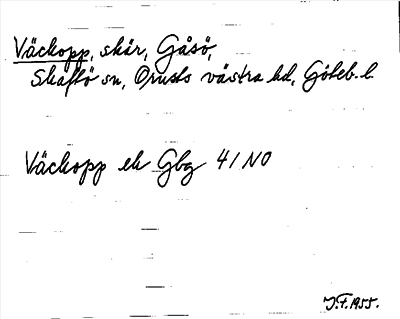 Väckopp, skär, Gåsö,
Skaftö sn, Orusts västra hd, Göteb. l.
Väckopp ek Gbg 41 NO
J.F. 1955.